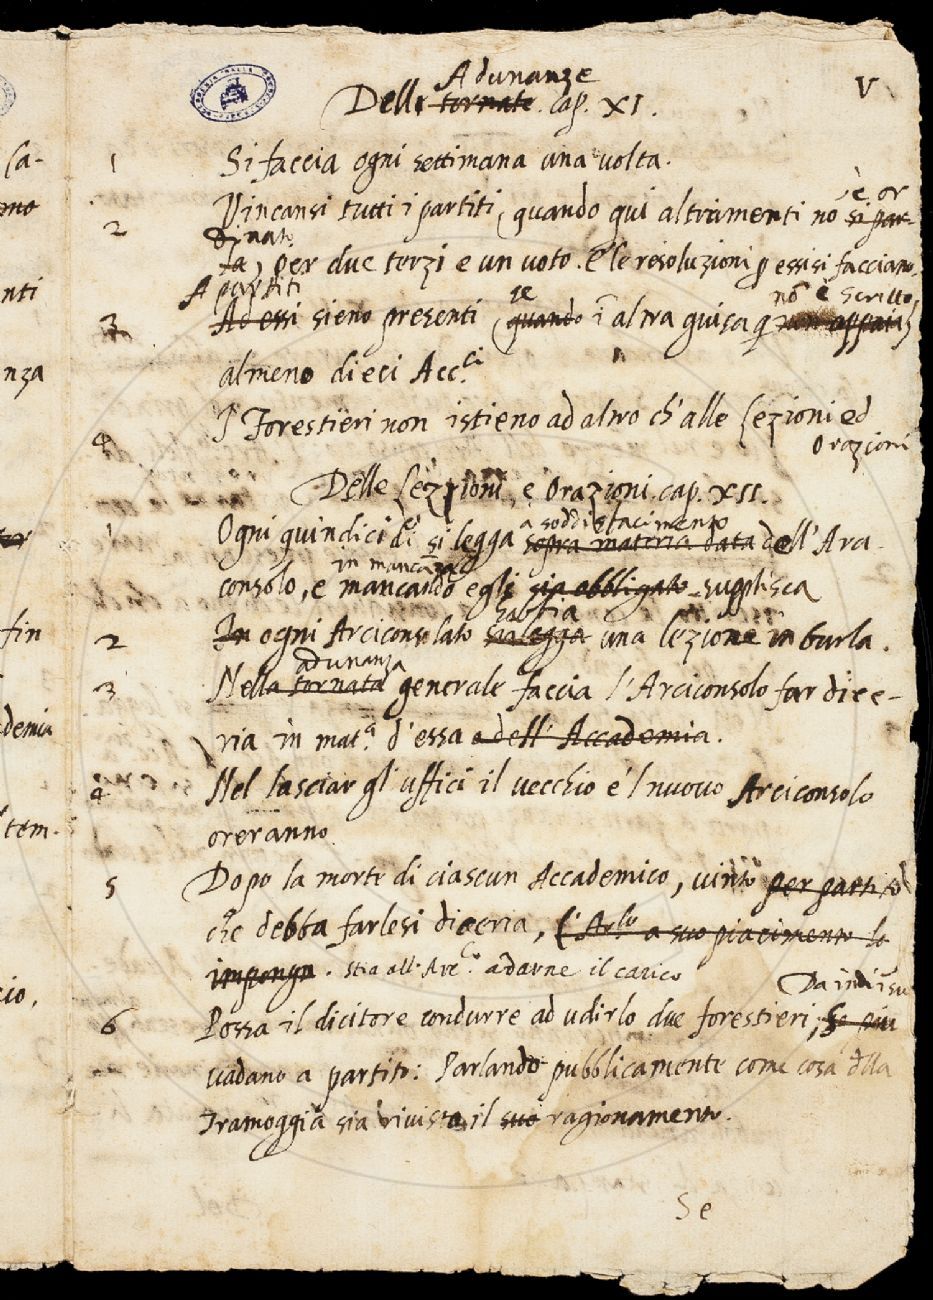 Adunanze
V
Delle tornate. cap. XI.
1 Si faccia ogni settimana una volta.
è or
2 Vincansi tutti i partiti, quando qui altrimenti nō si par-
dinato
la, per due terzi e un voto. E le resoluzioni p essi si facciano.
A partiti se nō è scritto,
3 Ad essi sieno presenti quando ī altra guisa q non appaia,
almeno dieci Acc.ci
4 I Forestieri non istieno ad altro ch'alle Lezioni ed
Orazioni
Delle Lezzioni, e Orazioni. cap. XII.
a soddisfacimento
1 Ogni quindici dì si legga sopra materia data dell'Arci-
in mancāza
consolo, e mancando egli sia obbligato supplisca
habbia
2 In ogni Arciconsolato si legga una lezione in burla.
adunanza
3 Nella tornata generale faccia l'Arciconsolo far dice-
ria in mat.a d'essa o dell'Accademia.
4 Nel lasciar gl'uffici il vecchio e'l nuovo Arciconsolo
oreranno
5 Dopo la morte di ciascun Accademico, vinto per partito
che debba farlesi diceria, l'Ar.lo a suo piacimento lo
impongn. stia all'Arc.lo adarne il carico
Da indi ī su
6 Possa il dicitore condurre ad udirlo due forestieri, se piu
vadano a partito: Parlando pubblicamente come cosa dlla
Tramoggia sia rivista il suo ragionamento.
Se
Ca-
ono
nti
nza
fin
demia
tem-
cio,